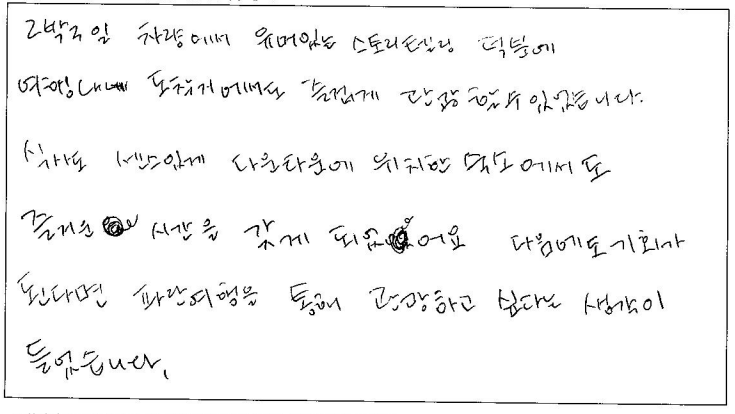 2박3일 차량에서 유머있는 스토리텔링 덕분에
여행내내 도착지에서도 즐겁게 관광할수있었습니다.
식사도 센스있게 다운타운에 위치한 숙소에서도
즐거운 시간을 갖게 되었어요 다음에도 기회가
된다면 파란여행을 통해 관광하고 싶다는 생각이
들었습니다.